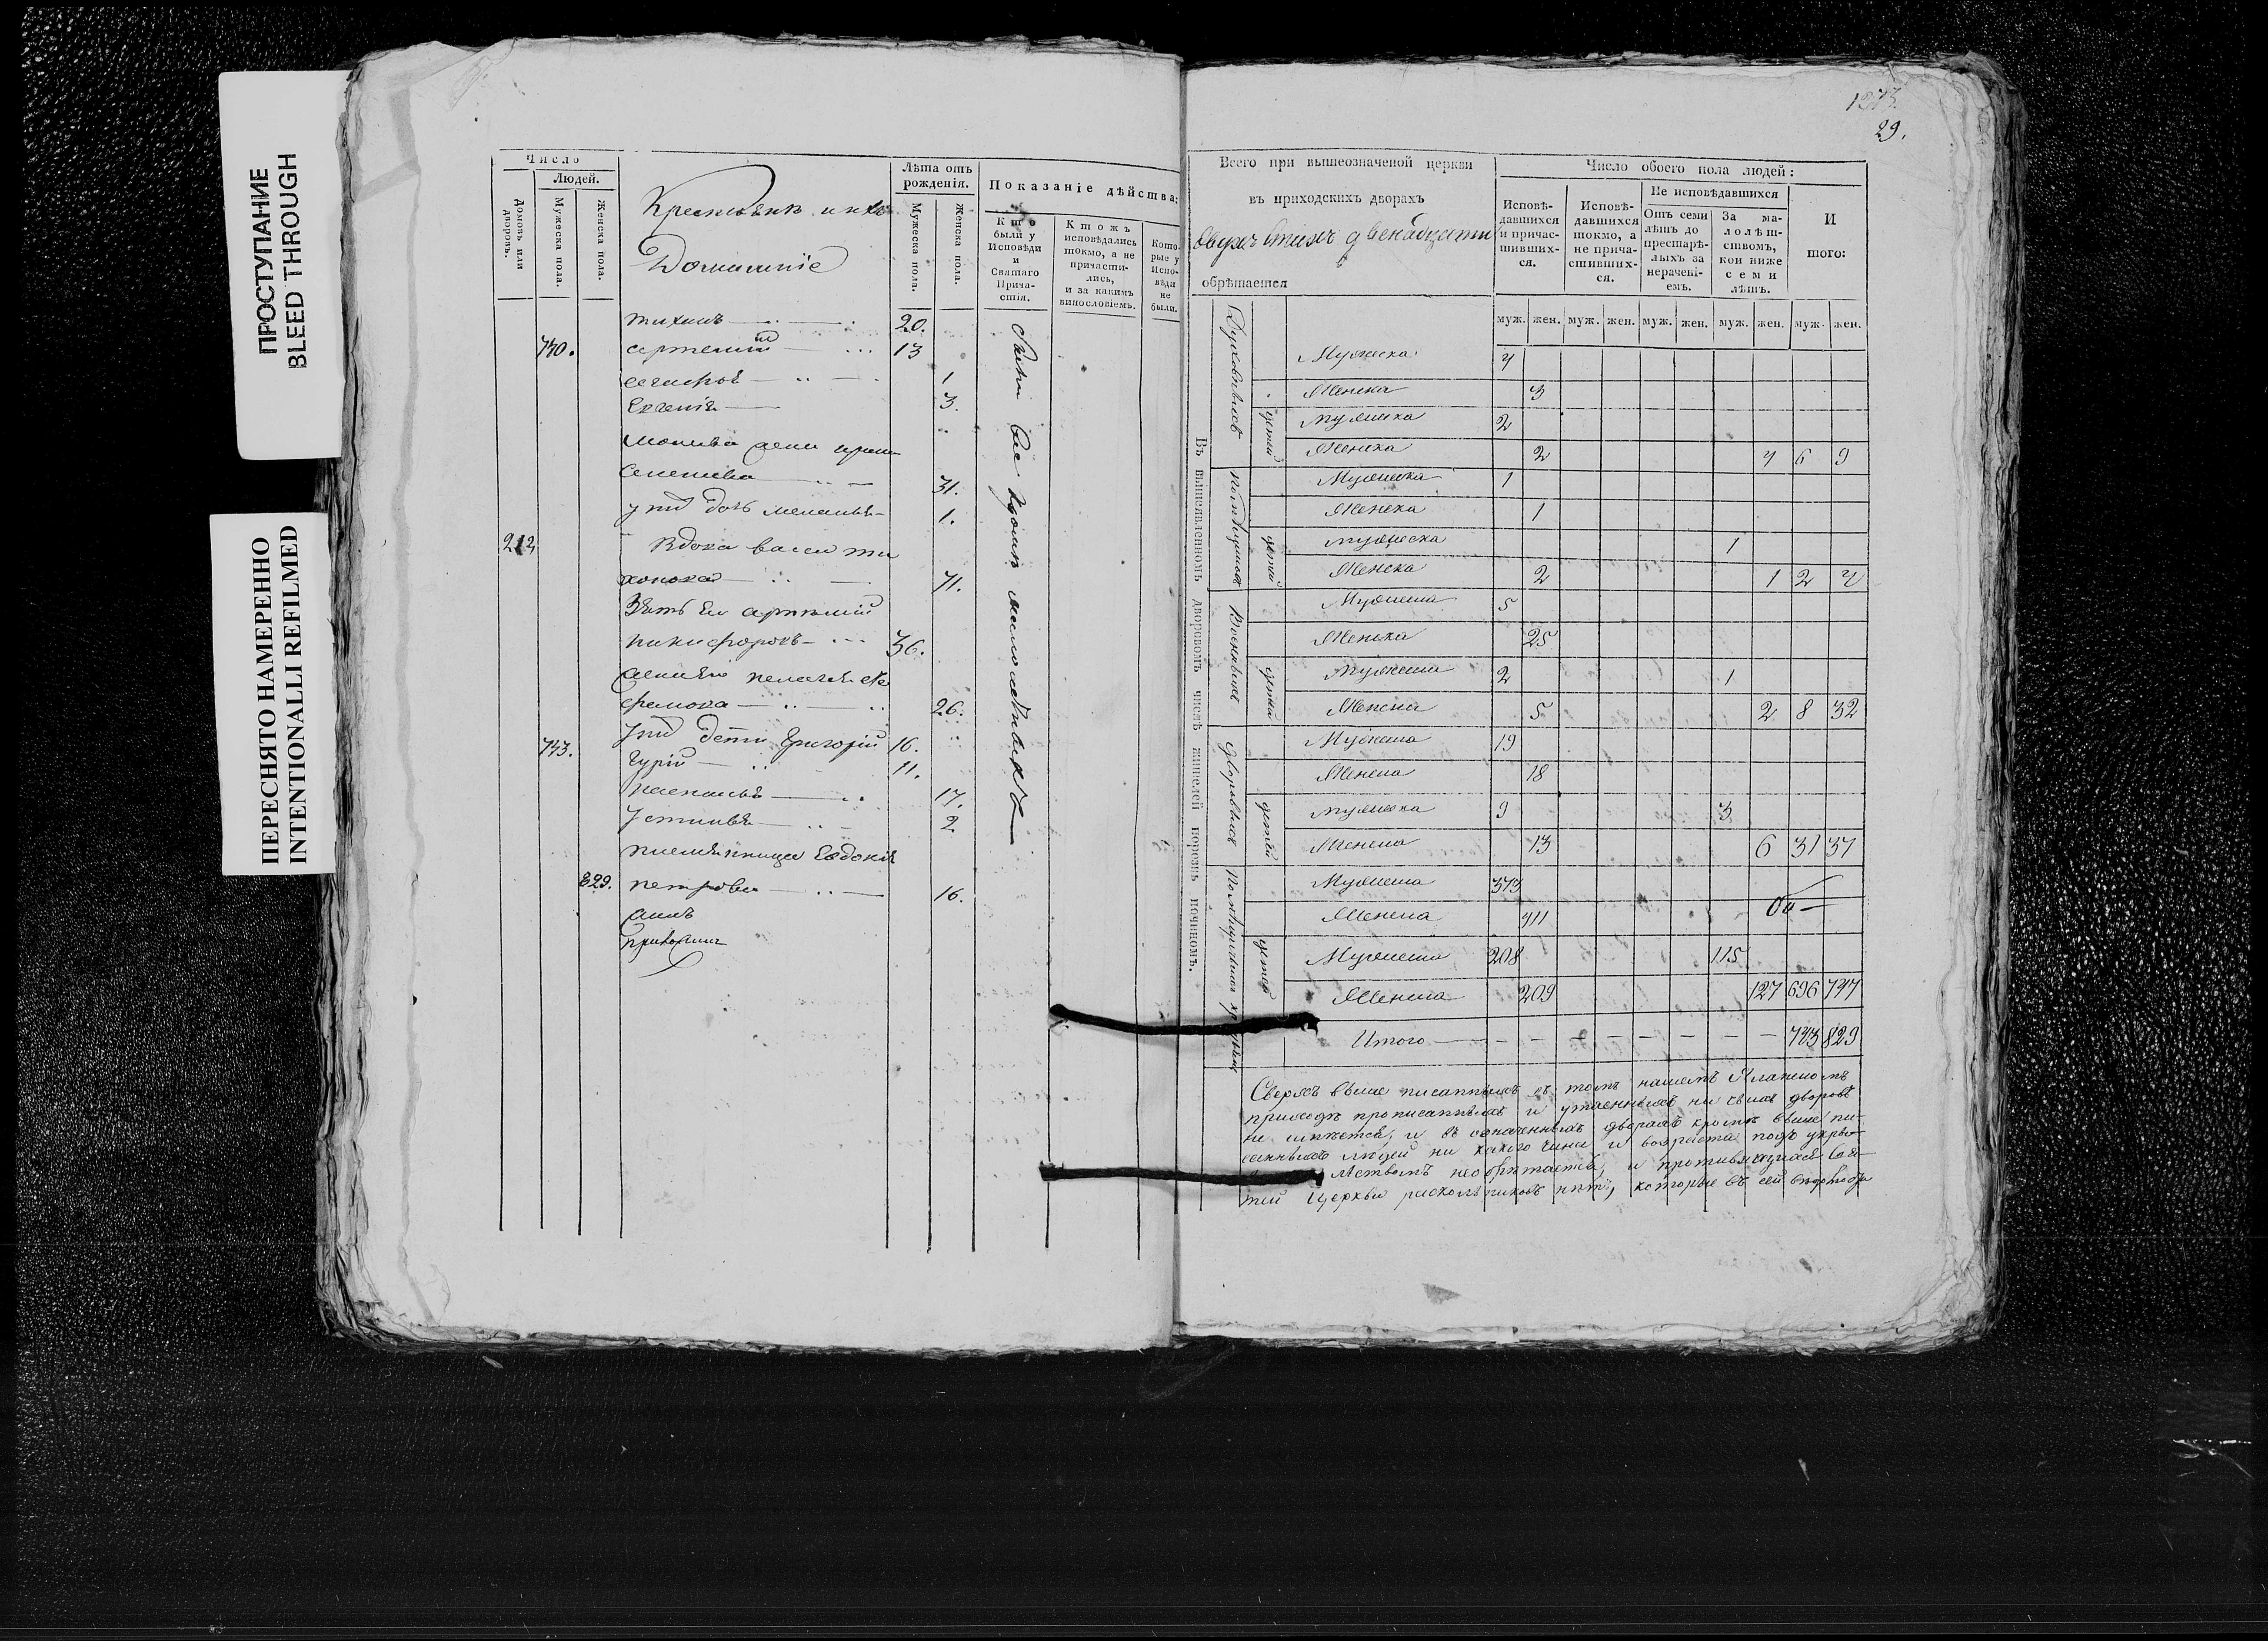 ПРОСТУПАНИЕ
BLEED THROUGH
ПЕРЕСНЯТО НАМЕРЕННО
INTENTIONALLI REFILMED
Число
Людей.
Домовъ или дворовъ.
Мужеска пола.
Женска пола.
Крестьянъ и ихъ
Домашние
Лѣта отъ рожденія.
Мужеска пола.
Женска пола.
Показаніе дѣйства;
Кто были у Исповѣди и Святаго Причастія.
Ктожъ исповѣдались токмо, а не причастились, и за какимъ винословіемъ.
Которые у Исповѣди не были.
тихонъ 20.
740. артемий 13
1
Евгенія 3.
31.
у ней дочь меланья 1.
212 Вдова василиса ти
хонова 71.
Зять Ея артемий
никифоровъ 36.
Жена Его пелагея
26.
У ней дети Григорій 16.
743. Гурій 11.
17.
Устинья 2
племянница Евдокія
829. петрова 16.
1273.
29.
Всего при вышеозначеной церкви
въ приходскихъ дворахъ
двухъ стахъ двенадцати
обрѣтается
Число обоего пола людей:
Исповѣдавшихся и причастившихся.
Исповѣдавшихся токмо, а не причастившихся.
Не исповѣдавшихся
Отъ семи лѣтъ до престарѣлыхъ за нераченіемъ.
За малолѣтствомъ, кои ниже семи лѣтъ.
Итого:
муж. жен. муж. жен. муж. жен. муж. жен. муж. жен.
Въ вышеявленномъ дворовомъ числѣ жителей порознь починомъ.
Духовныхъ
Мужеска 4
Женска 3
детей
Мужеска 2
Женска 2 4 6 9
Мужеска 1
Женска 1
детей
Мужеска 1
Женска 2 1 2 4
Военныхъ
Мужеска 5
Женска 25
детей
Мужеска 2 1
Женска 5 2 8 32
дворовыхъ
Мужеска 19
Женска 18
детей
Мужеска 9 3
Женска 13 6 31 37
Мужеска 373
Женска 411
детей
Мужеска 208 115
Женска 209 127 696 747
Итого 743 829
Сверхъ выше писанныхъ въ томъ нашемъ
приходе прописанныхъ и утаенныхъ ни чьихъ дворовъ
не имеется, и въ означенныхъ дворахъ кроме выше пи-
санныхъ людей ни какого чина и возраста подъ укры-
необретается, и противящихся Свя-
тей Церкви расколниковъ нетъ, которые бъ въ сей